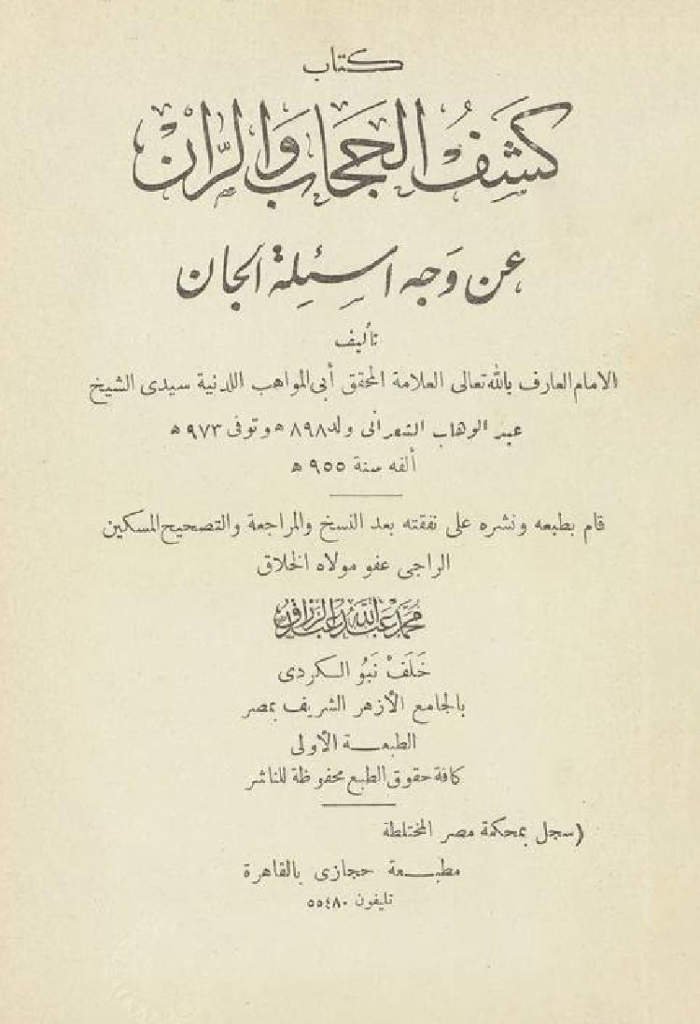 كتاب
كَشَفُ الحِجَاب وَالرَّانْ
عن وَجه اسئِلة الجان
تأليف
الامام العارف بالله تعالى العلامة المحقق أبى المواهب اللدنية سيدى الشيخ
عبد الوهاب الشعرانى ولد ٨٩٨ ه وتوفى ٩٧٣ ه
ألفه سنة ٩٥٥ ه
قام بطبعه ونشره على نفقته بعد النسخ والمراجعة والتصحيح المسكين
الراجى عفو مولاه الخلاق
محمد عبد الله عبد الرزاق
خَلَفْ نَبُو الكردى
بالجامع الأزهر الشريف بمصر
الطبعة الأولى
كافة حقوق الطبع محفوظة للناشر
(سجل بمحكمة مصر المختلطة
مطبعة حجازى بالقاهرة
تليفون ٥٥٤٨٠